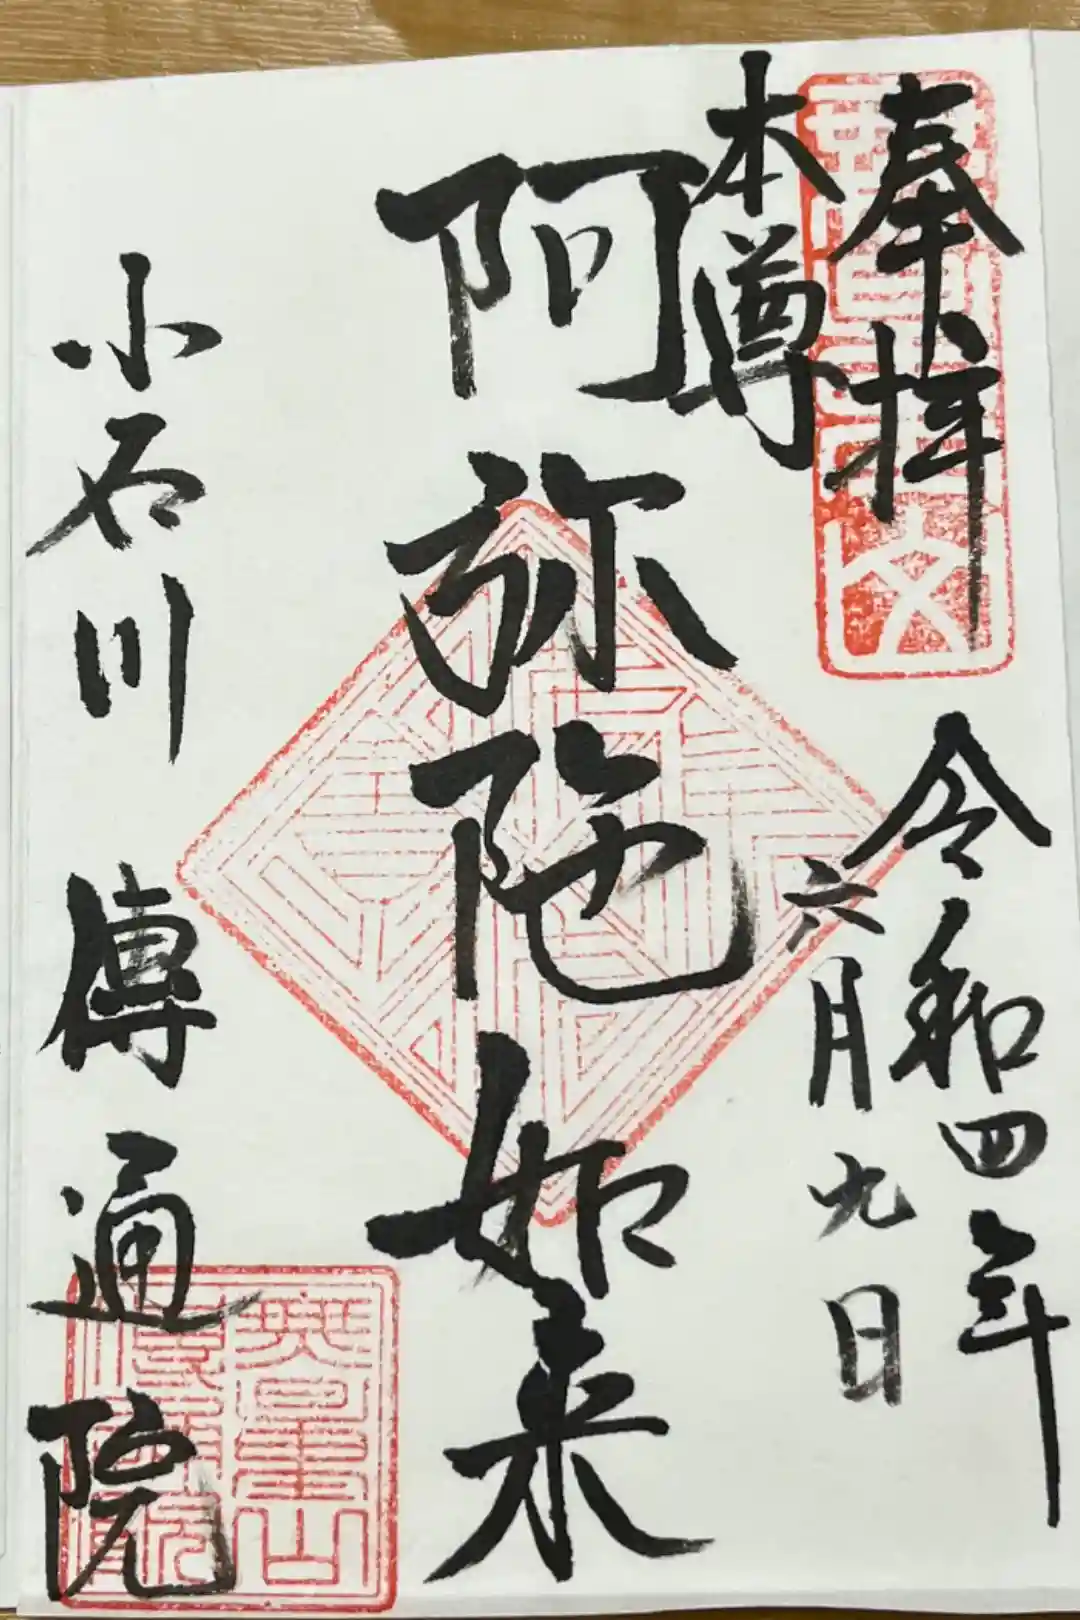 奉拝
令和四年
六月九日
本尊
阿弥陀如来
小石川 傳通院
無量山
傳通院